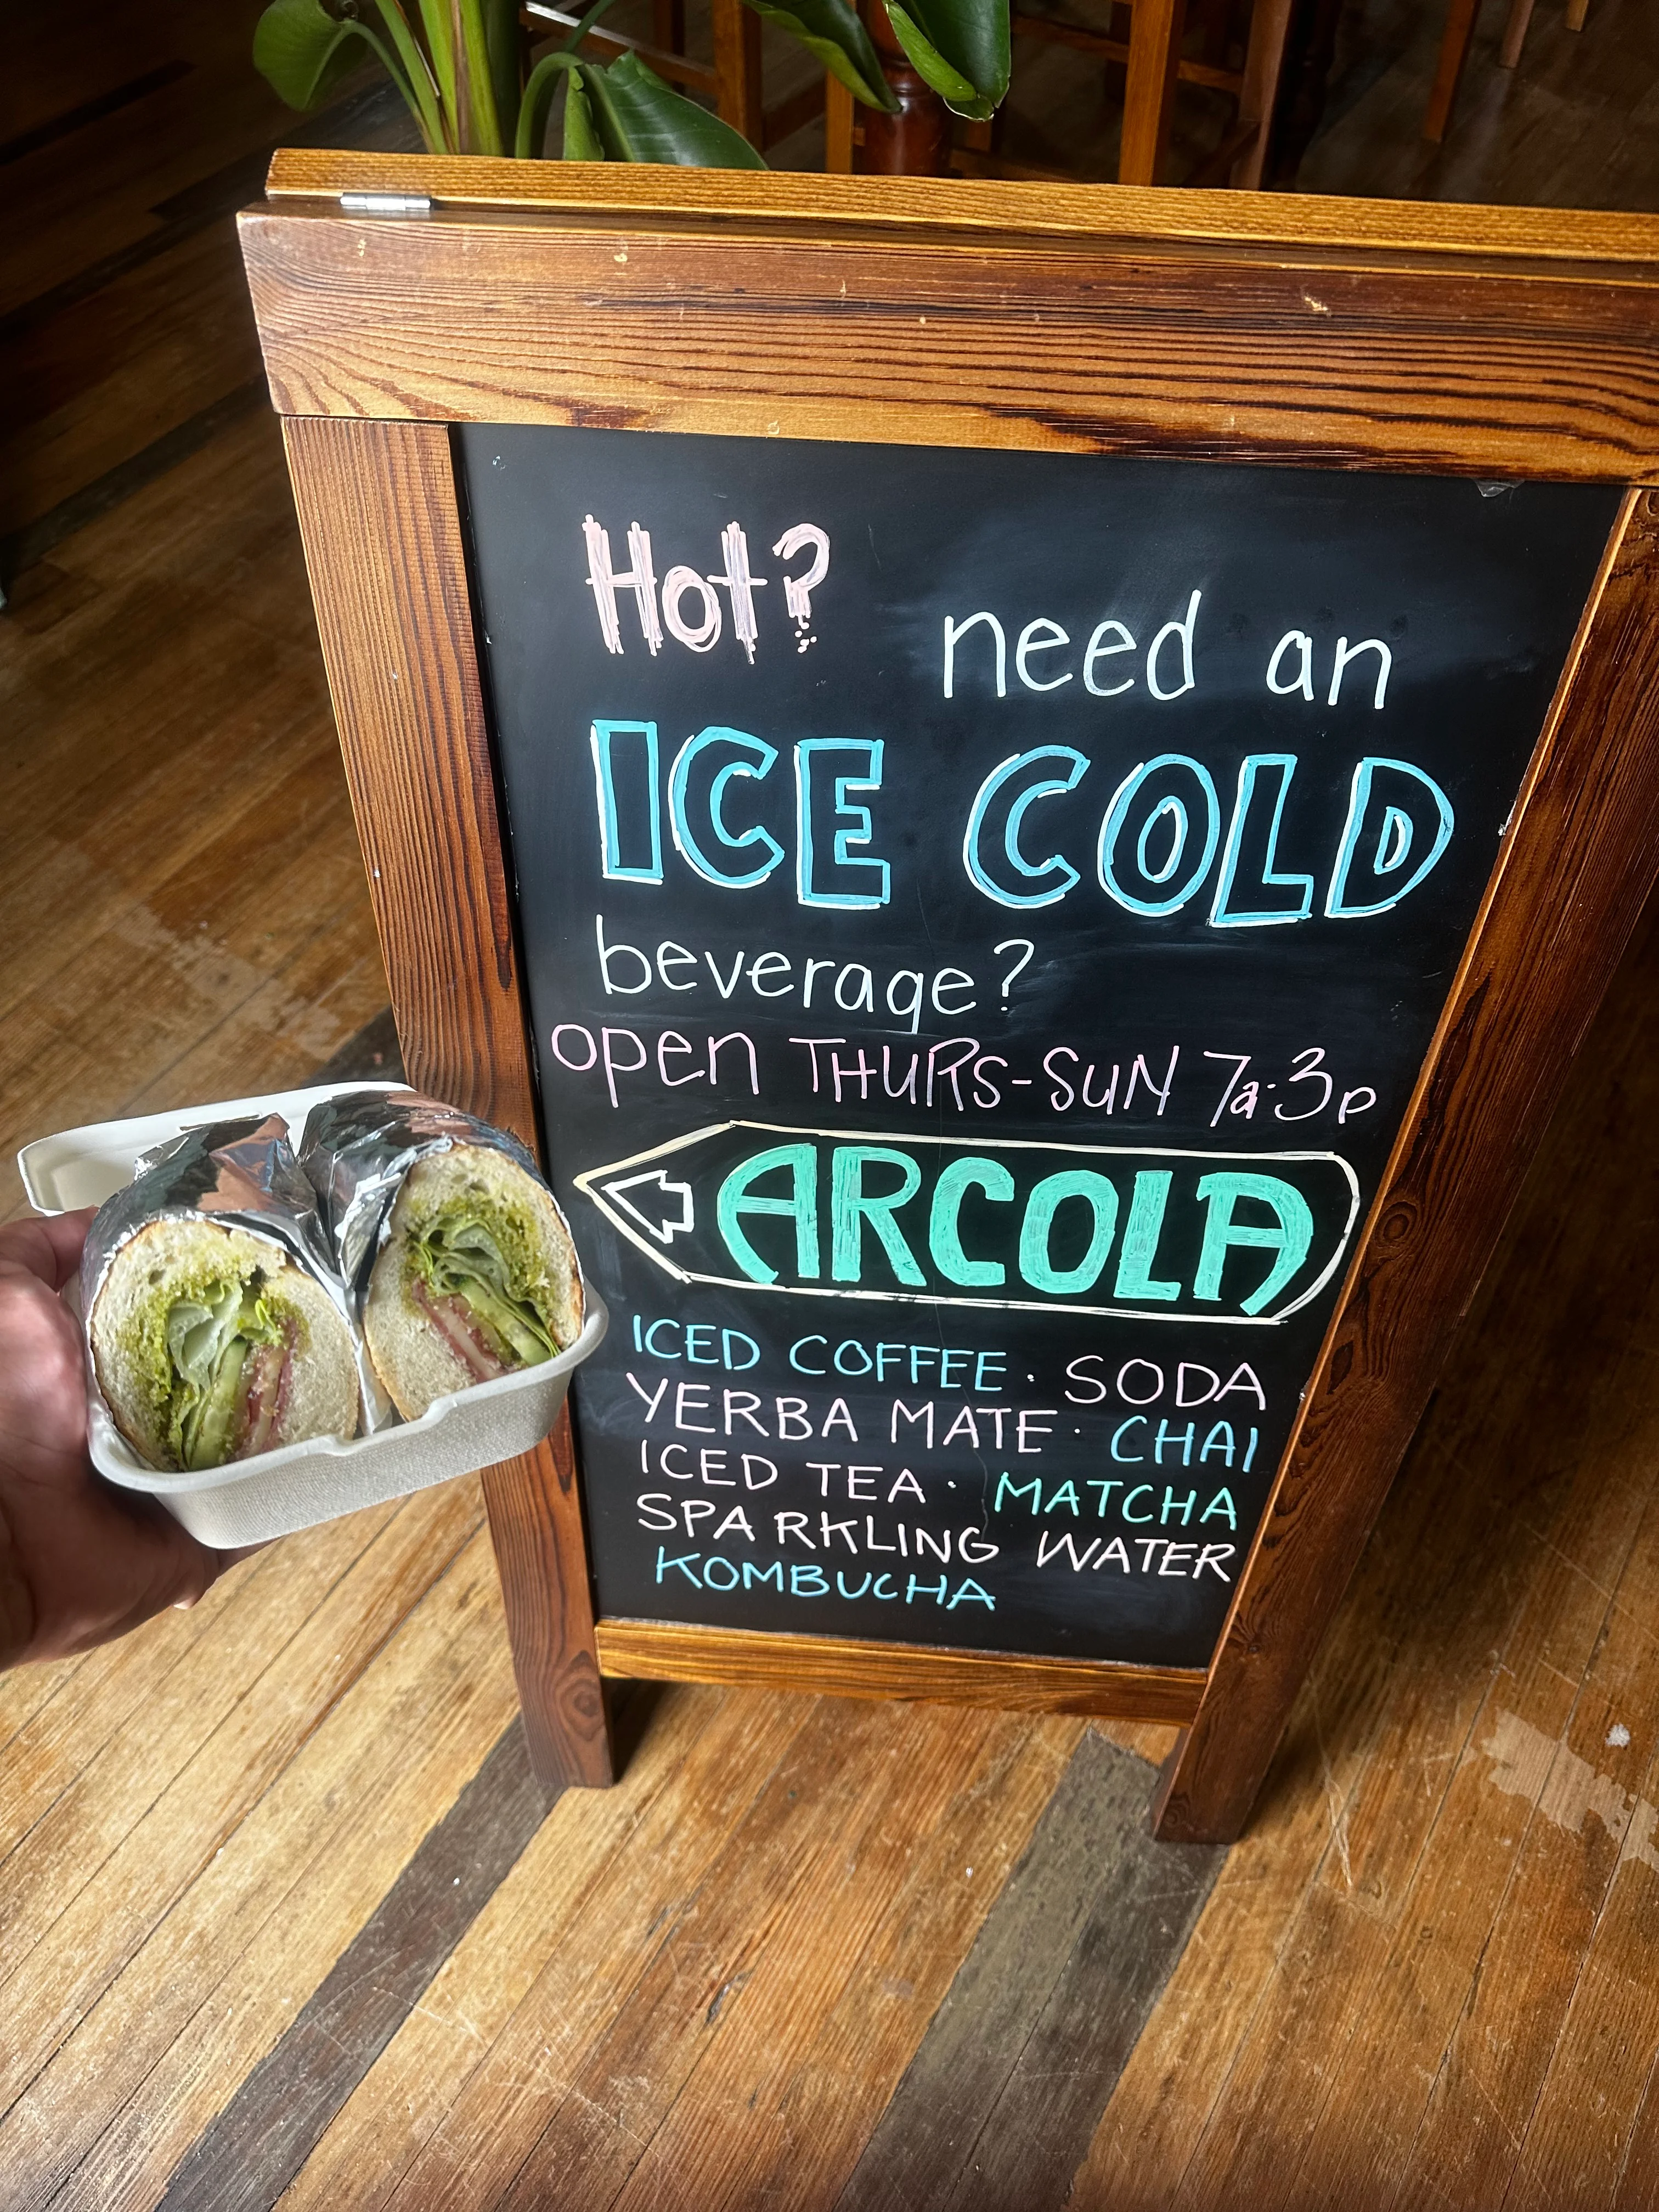 Hot? need an
ICE COLD
beverage?
open THURS-SUN 7a-3p
ARCOLA
ICED COFFEE · SODA
YERBA MATE · CHAI
ICED TEA · MATCHA
SPARKLING WATER
KOMBUCHA